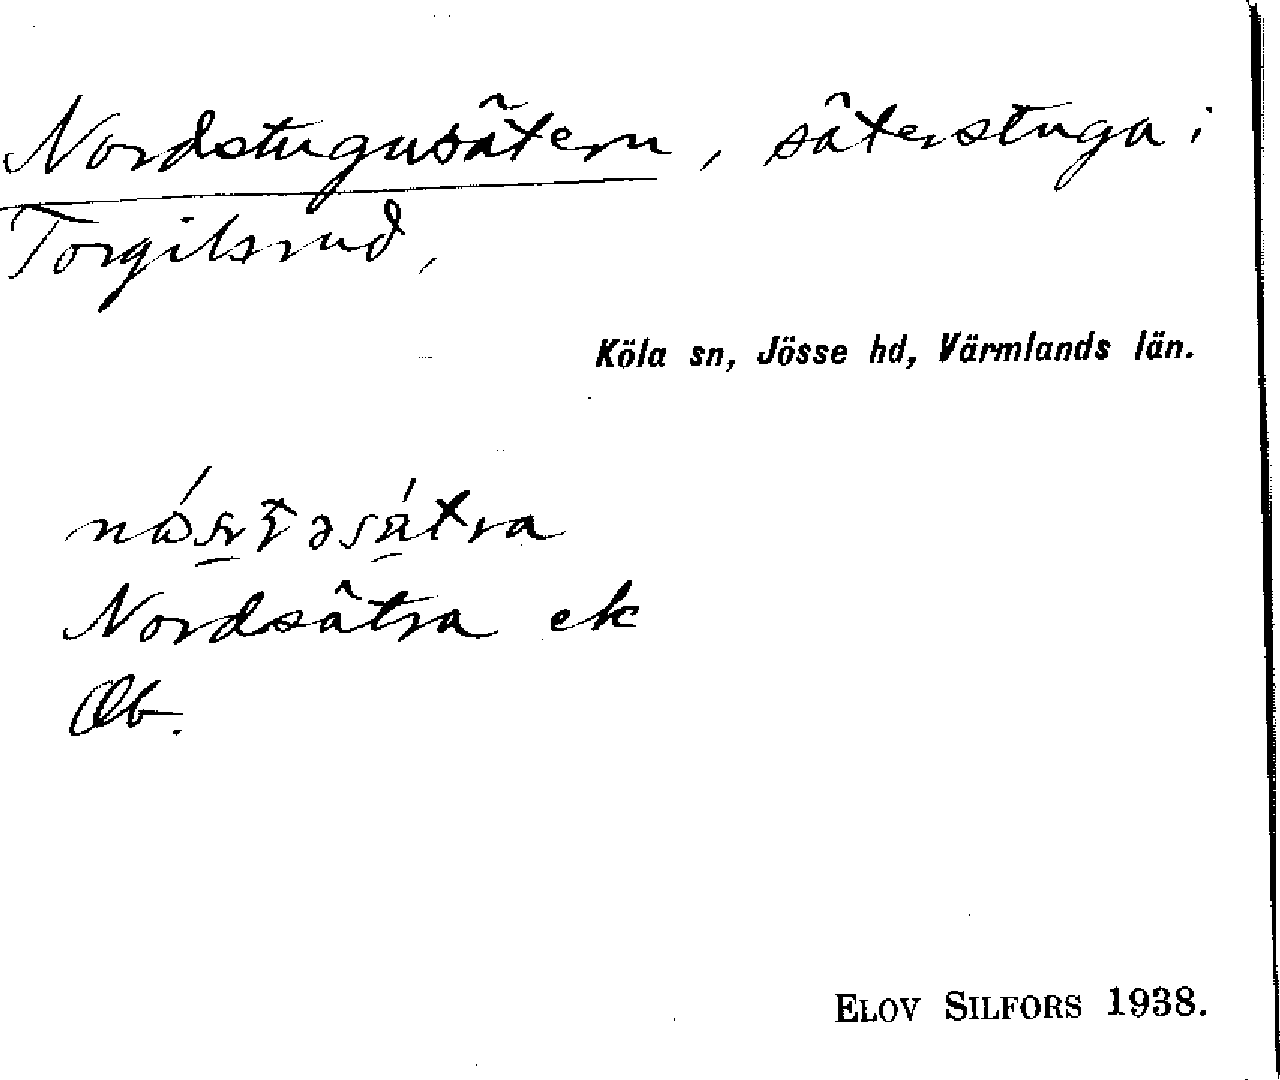 Nordstugusätern, säterstuga i
Torgilsrud,
Köla sn, Jösse hd, Värmlands län.
Nordsätra ek
Ob.
ELOV SILFORS 1938.